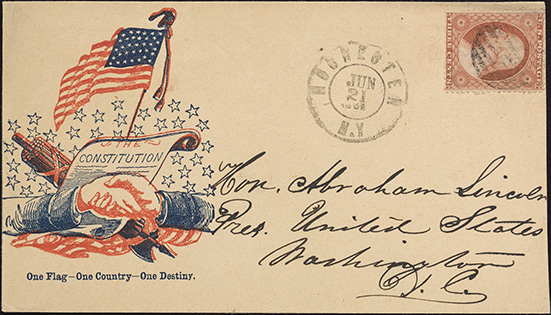 THE
CONSTITUTION
One Flag—One Country—One Destiny.
ROCHESTER
JUN
21
1861
N.Y.
Hon. Abraham Lincoln
Pres. United States
Washington
D. C.